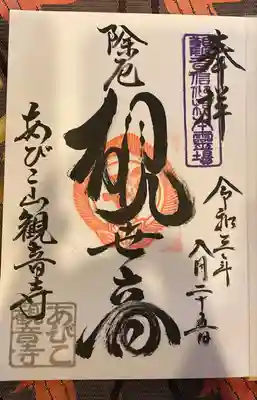 奉拝
令和三年
八月二十五日
除厄
観世音
あびこ山観音寺
あびこ
観音寺